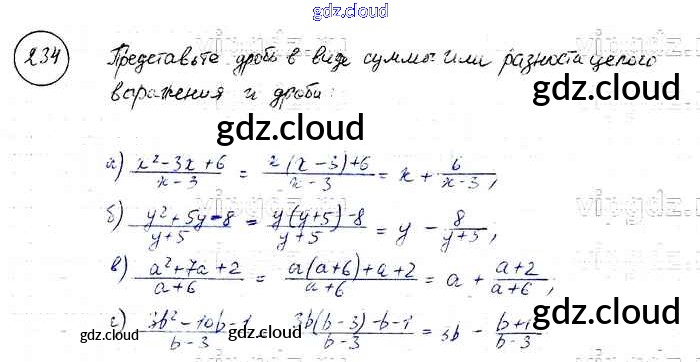 gdz.cloud
234 Представьте дробь в виде суммы или разности целого
выражения и дроби:
gdz.cloud
gdz.cloud
а) \frac{x²-3x+6}{x-3} = \frac{x(x-3)+6}{x-3} = x + \frac{6}{x-3},
б) \frac{y²+5y-8}{y+5} = \frac{y(y+5)-8}{y+5} = y - \frac{8}{y+5};
в) \frac{a²+7a+2}{a+6} = \frac{a(a+6)+a+2}{a+6} = a + \frac{a+2}{a+6};
г) \frac{3b²-10b-1}{b-3} \frac{3b(b-3)-b-1}{b-3} = 3b - \frac{b+1}{b-3}
gdz.cloud
gdz.cloud
gdz.cloud